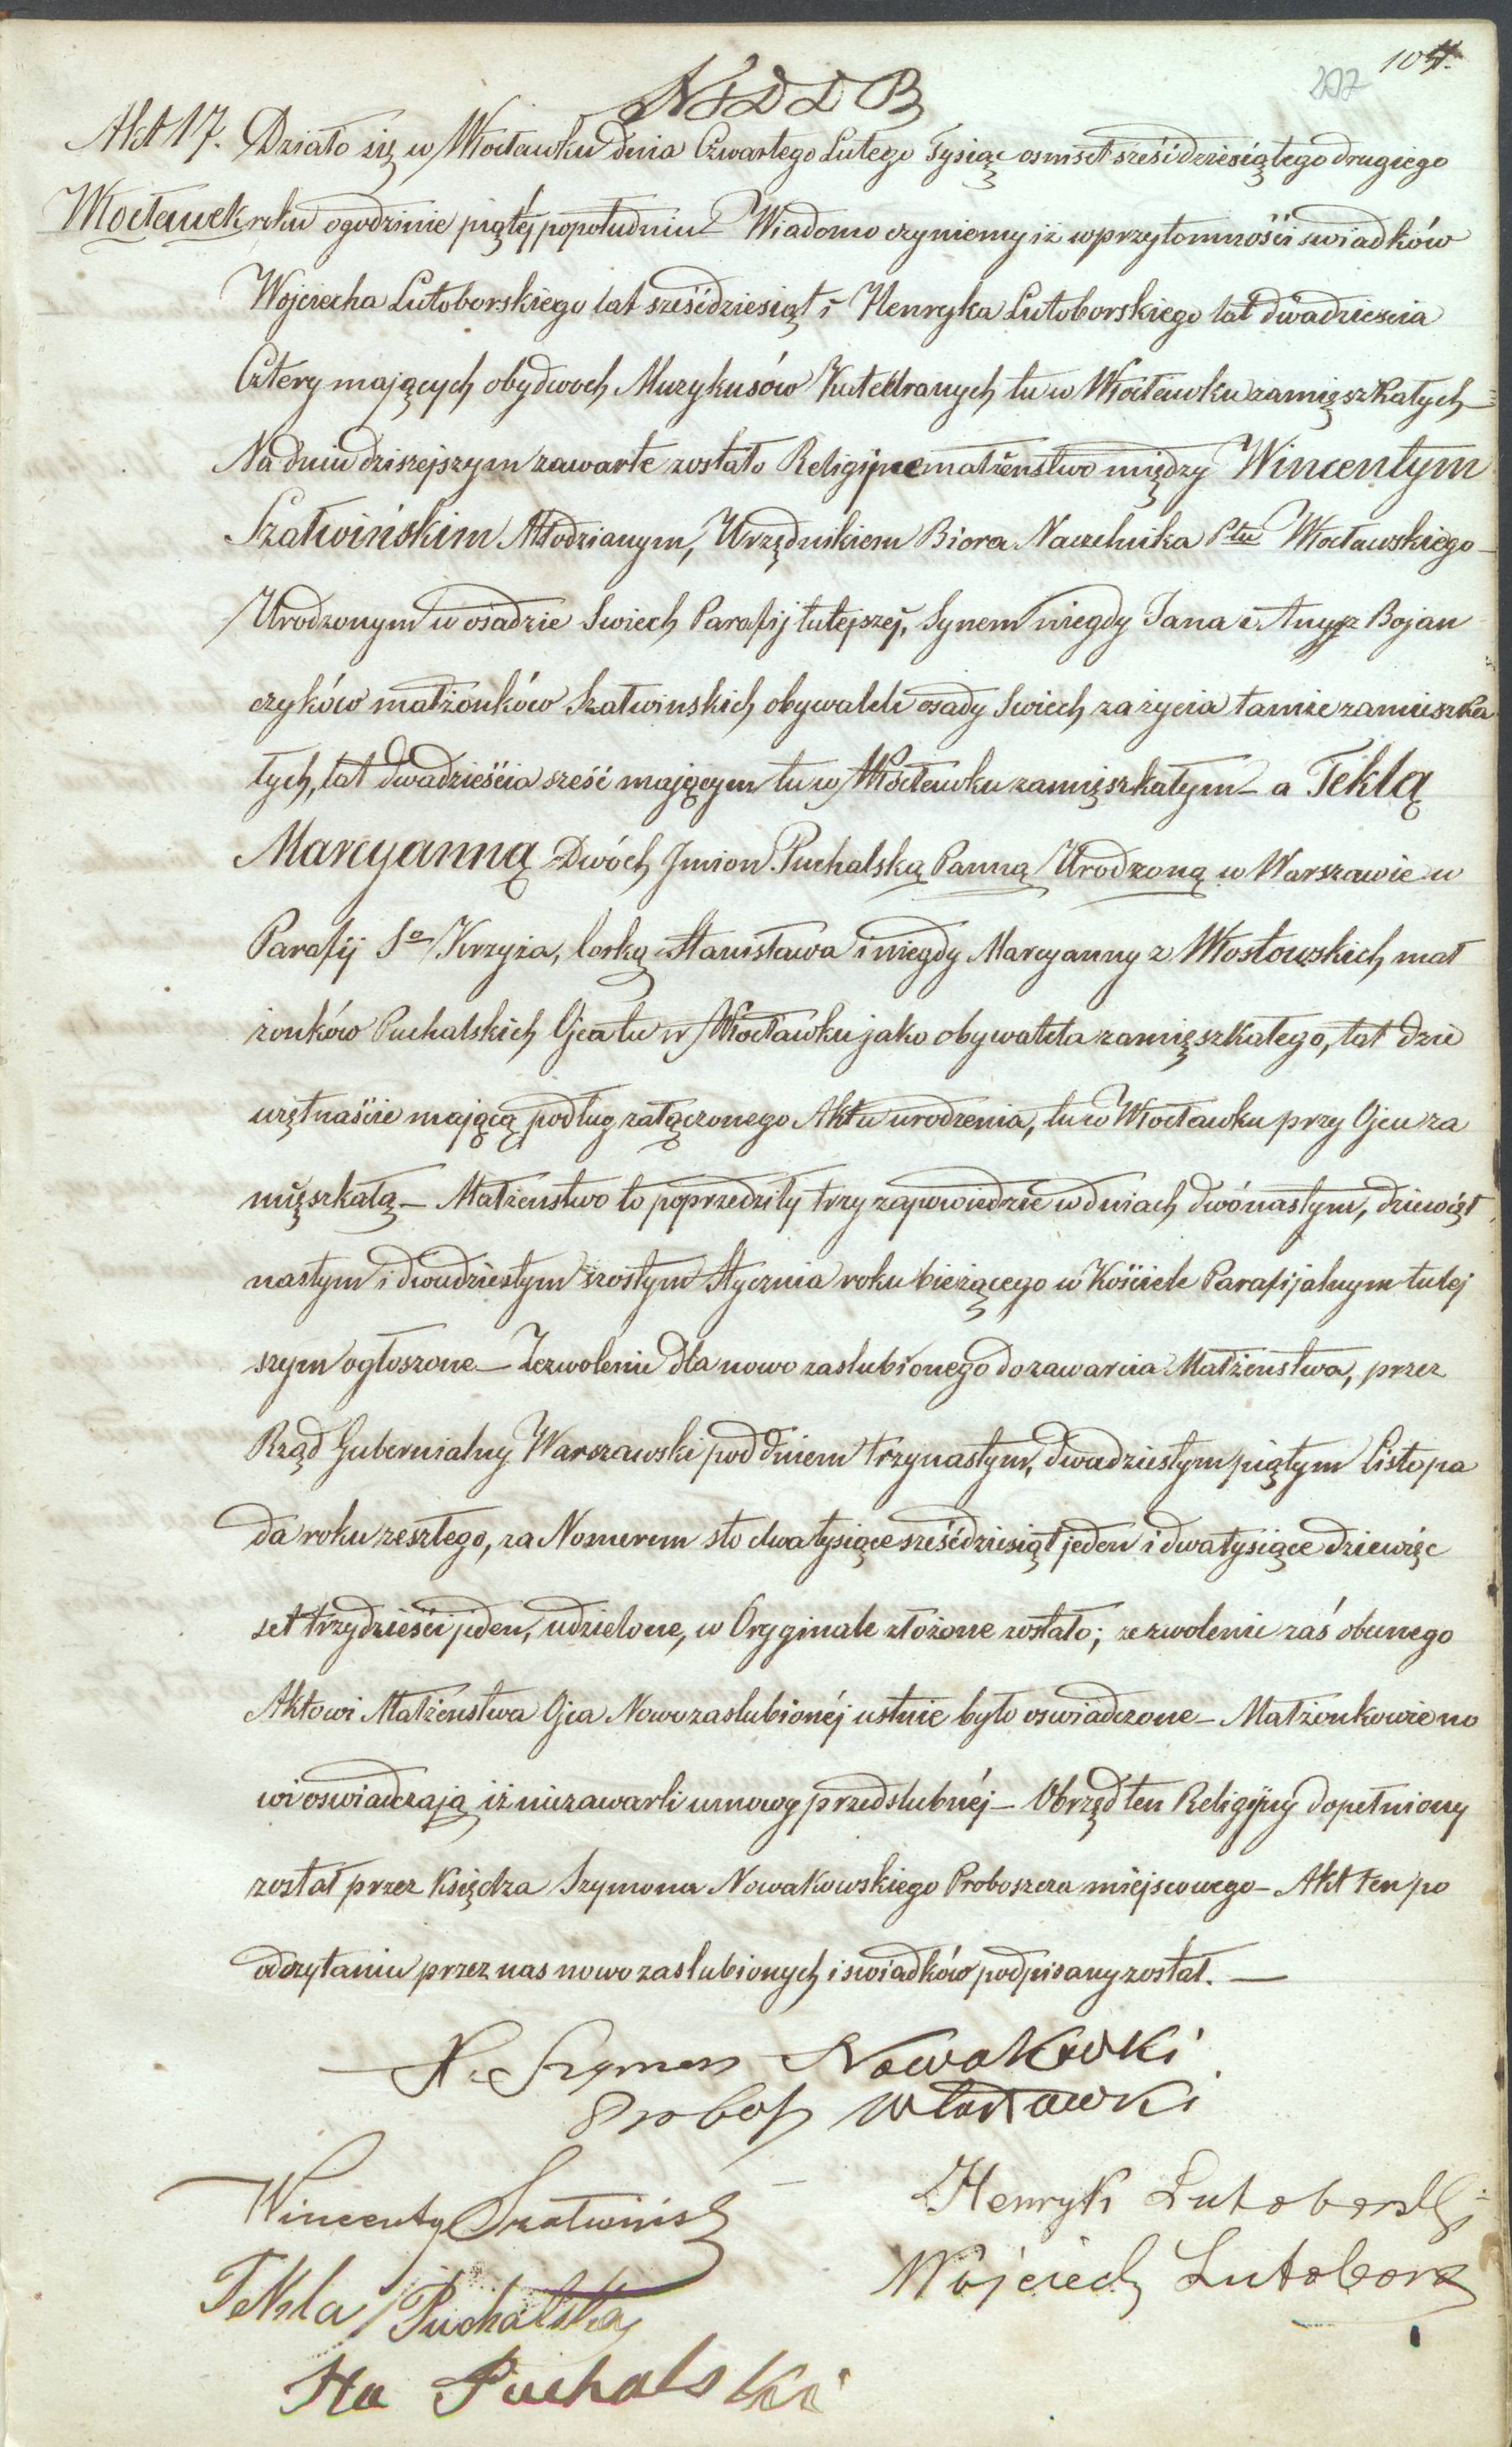 104.
202
N 2 D D B
Akt 17. Działo się w Włocławku dnia Czwartego Lutego Tysiąc osmset sześćdziesiątego drugiego
Włocławek roku o godzinie piątéj popołudniu Wiadomo czyniemy iż w przytomności swiadków
Wojciecha Lutoborskiego lat sześćdziesiąt i Henryka Lutoborskiego lat dwadziescia
Cztery mających obydwoch Muzykusów Katedranych tu w Włocławku zamięszkałych
Na dniu dzisiejszym zawarte zostało Religijne małżenstwo między Wincentym
Szatwińskim Młodzianym, Urzędnikiem Biora Naczelnika Ptu Włocławskiego
Urodzonym w osiadzie Swiech Parafij tutejszej, Synem niegdy Jana i Anny z Bojan
czyków małżonków Szatwinskich obywateli osady Swiech za życia tamże zamieszka
łych, lat dwadzieścia sześć mającym tu w Włocławku zamięszkałym – a Teklą
Marcyanną Dwóch Jmion Puchalską Panną Urodzoną w Warszawie w
Parafij So Krzyża, Corką Stanisława i niegdy Marcyanny z Włostowskich mał
żonków Puchalskich Ojca tu w Włocławku jako obywatela zamięszkałego, lat dzie
więtnaście mającą podług załączonego Aktu urodzenia, tu w Włocławku przy Ojcu za
mięszkałą – Małżenstwo to poprzedziły trzy zapowiedzie w dniach dwónastym, dziewięt
nastym i dwudziestym szostym Stycznia roku bieżącego w Kościele Parafijalnym tutej
szym ogłoszone – Zezwolenie dla nowo zaslubionego do zawarcia Małżenstwa, przez
Rząd Gubernialny Warszawski pod dniem trzynastym, dwadziestym piątym Listopa
da roku zeszłego, za Nomerem sto dwa tysiące sześćdziesiąt jeden i dwa tysiące dziewięć
set trzydzieści jeden, udzielone, w Oryginale złożone zostało; zezwolenie zaś obecnego
Aktowi Małżenstwa Ojca Nowozaslubionéj ustnie było oswiadczone – Małżonkowie no
wi oswiadczają iż niezawarli umowy przedslubnéj – Obrzęd ten Religijny dopełniony
został przez Księdza Szymona Nowakowskiego Proboszcza miejscowego – Akt ten po
odczytaniu przez nas nowo zaslubionych i swiadków podpisany został. –
X. Szymon Nowakowski
Probosz Włocławki
Wincenty Szatwiński
Henryk Lutoborski
Tekla Puchalska
Wojciech Lutobors
Sta Puchalski